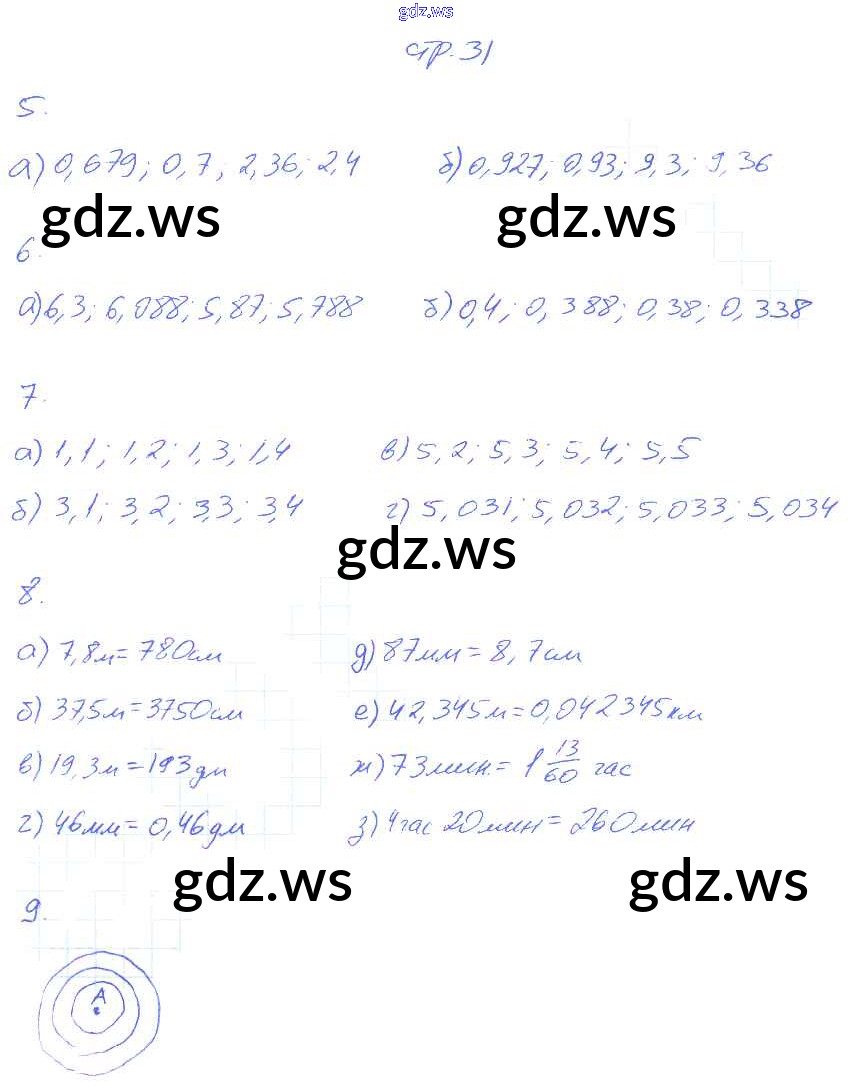 gdz.ws
стр. 31
5.
а) 0,679; 0,7; 2,36; 2,4 б) 0,927; 0,93; 9,3; 9,36
gdz.ws gdz.ws
6.
а) 6,3; 6,088; 5,87; 5,788 б) 0,4; 0,388; 0,38; 0,338
7.
а) 1,1; 1,2; 1,3; 1,4 в) 5,2; 5,3; 5,4; 5,5
б) 3,1; 3,2; 3,3; 3,4 г) 5,031; 5,032; 5,033; 5,034
gdz.ws
8.
а) 7,8м = 780см д) 87мм = 8,7см
б) 37,5м = 3750см е) 42,345м = 0,042345км
в) 19,3м = 193дм ж) 73мин. = 1 13/60 час
г) 46мм = 0,46дм з) 4час 20мин = 260мин
gdz.ws gdz.ws
9.
А